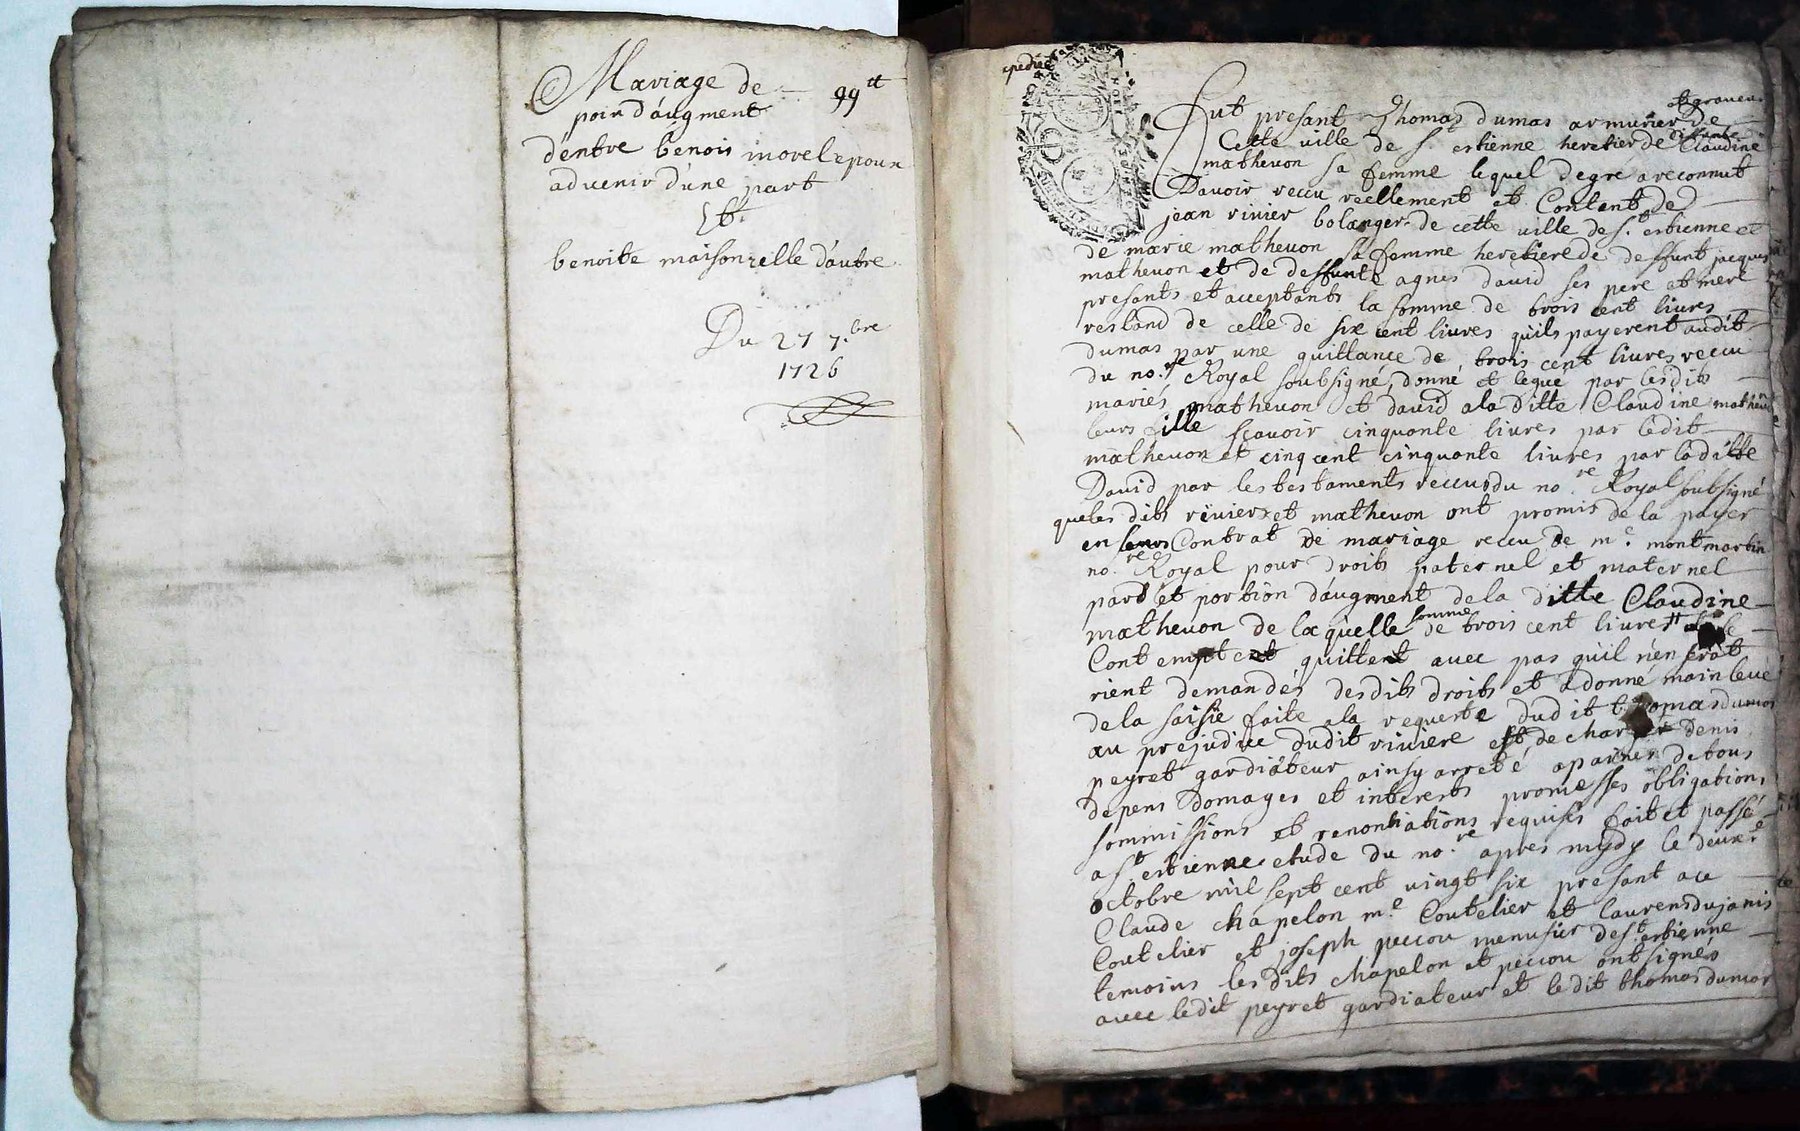 Mariage de 99tt
poin d'augment
d'entre benois morel epoux
advenir d'une part
Et
benoite maisonzelle d'autre
Du 27 7.bre
1726
expediée
et graveur
Fut presant Thomas dumas armurier de
deffunte
Cette ville de st estienne heretier de Claudine
mathevon sa femme lequel de gré a reconnut
Davoir receu reellement et Contant de
jean rivier bolanger de cette ville de st. estienne et
de marie mathevon sa femme heretiere de deffunt jacques
mathevon et de deffunte agnes david ses pere et mere
presants et acceptants la somme de trois cent livres
restand de celle de six cent livres qu'ils payerent audit
dumas par une quittance de trois cent livres receu
du no.re Royal soubsigné, donné et legué par lesdits
mariés mathevon et david a la ditte Claudine mathevon
leurs fille sçavoir cinquante livres par ledit
mathevon et cinq cent cinquante livres par laditte
David par les testaments receus du no.re Royal soubsigné
que les dits rivier et mathevon ont promis de la payer
en leurs Contrat de mariage receu de me. montmartin
no.re Royal pour droits paternel et maternel
pard et portion d'augment de la ditte Claudine
mathevon de laquelle somme de trois cent livres tt
Contempt et quittent avec pas qu'il n'en serat
rient demandés desdits droits et a donné main levé
de la saisie faite a la requeste dudit thomas dumas
au prejudice dudit riviere et decharger denis
peyret gardiateur ainsy arreté a paines de tous
depens domages et interests promesses obligations
sommissions et renontiations requises fait et passé
a st. estienne etude du no.re apres mydy le deuxe.
octobre mil sept cent vingt six presant a ce
Claude chapelon me. Coutelier et laurens dujanis
Coutelier et joseph peccou menusier de st. estienne
temoins les dits chapelon et peccou ont signés
avec ledit peyret gardiateur et ledit thomas dumas